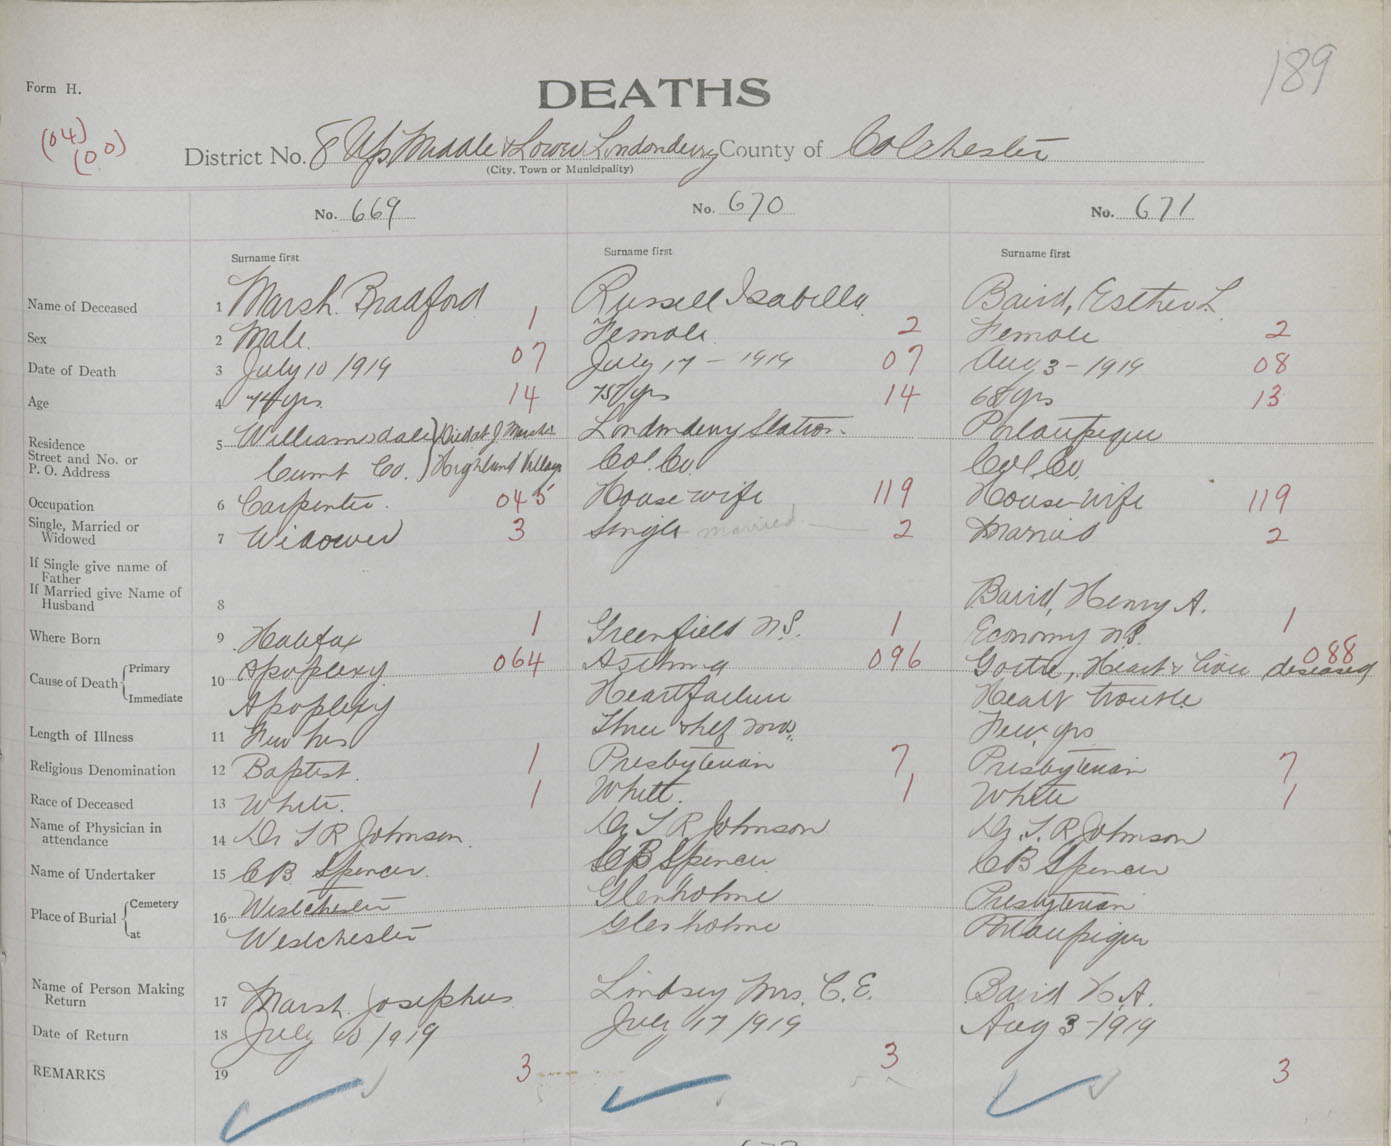 189
Form H.
DEATHS
(04)
(00)
District No. 8 Up Middle & Lower Londonderry County of Colchester
(City, Town or Municipality)
No. 669 No. 670 No. 671
Surname first Surname first Surname first
Name of Deceased 1 Marsh. Bradford Russell Isabella Baird, Esther L.
1 2 2
Sex 2 Male. Female. Female
Date of Death 3 July 10 1919 07 July 17 - 1919 07 Aug 3 - 1919 08
Age 4 74 yrs. 14 75 yrs 14 68 yrs 13
Residence
Street and No. or
P. O. Address
5 Williamsdale Died at J Marsh's Londonderry Station. Portaupique
Cumt Co. Highland Village Col. Co. Col. Co.
Occupation 6 Carpenter. 045 House-wife 119 House-wife 119
Single, Married or
Widowed
7 Widower 3 Single married 2 Married 2
If Single give name of
Father
If Married give Name of
Husband
8 Baird, Henry A.
Where Born 9 Halifax 1 Greenfield N.S. 1 Economy N.S. 1
Cause of Death Primary 10 Apoplexy 064 Asthma 096 Goitre, Heart & Liver diseased 088
Immediate Apoplexy Heart failure Heart trouble
Length of Illness 11 Few hrs Three & half mos. Few yrs
Religious Denomination 12 Baptist. 1 Presbyterian 7 Presbyterian 7
Race of Deceased 13 White. 1 White. 1 White 1
Name of Physician in
attendance
14 Dr T R Johnson. Dr T R Johnson Dr. T. R. Johnson
Name of Undertaker 15 C B Spencer. C B Spencer C B Spencer
Place of Burial Cemetery 16 Westchester Glenholme Presbyterian
at Westchester Glenholme Portaupique
Name of Person Making
Return
17 Marsh. Josephus Lindsey Mrs. C. E. Baird H. A.
Date of Return 18 July 10 1919 July 17 1919 Aug 3 - 1919
REMARKS 19 3 3 3